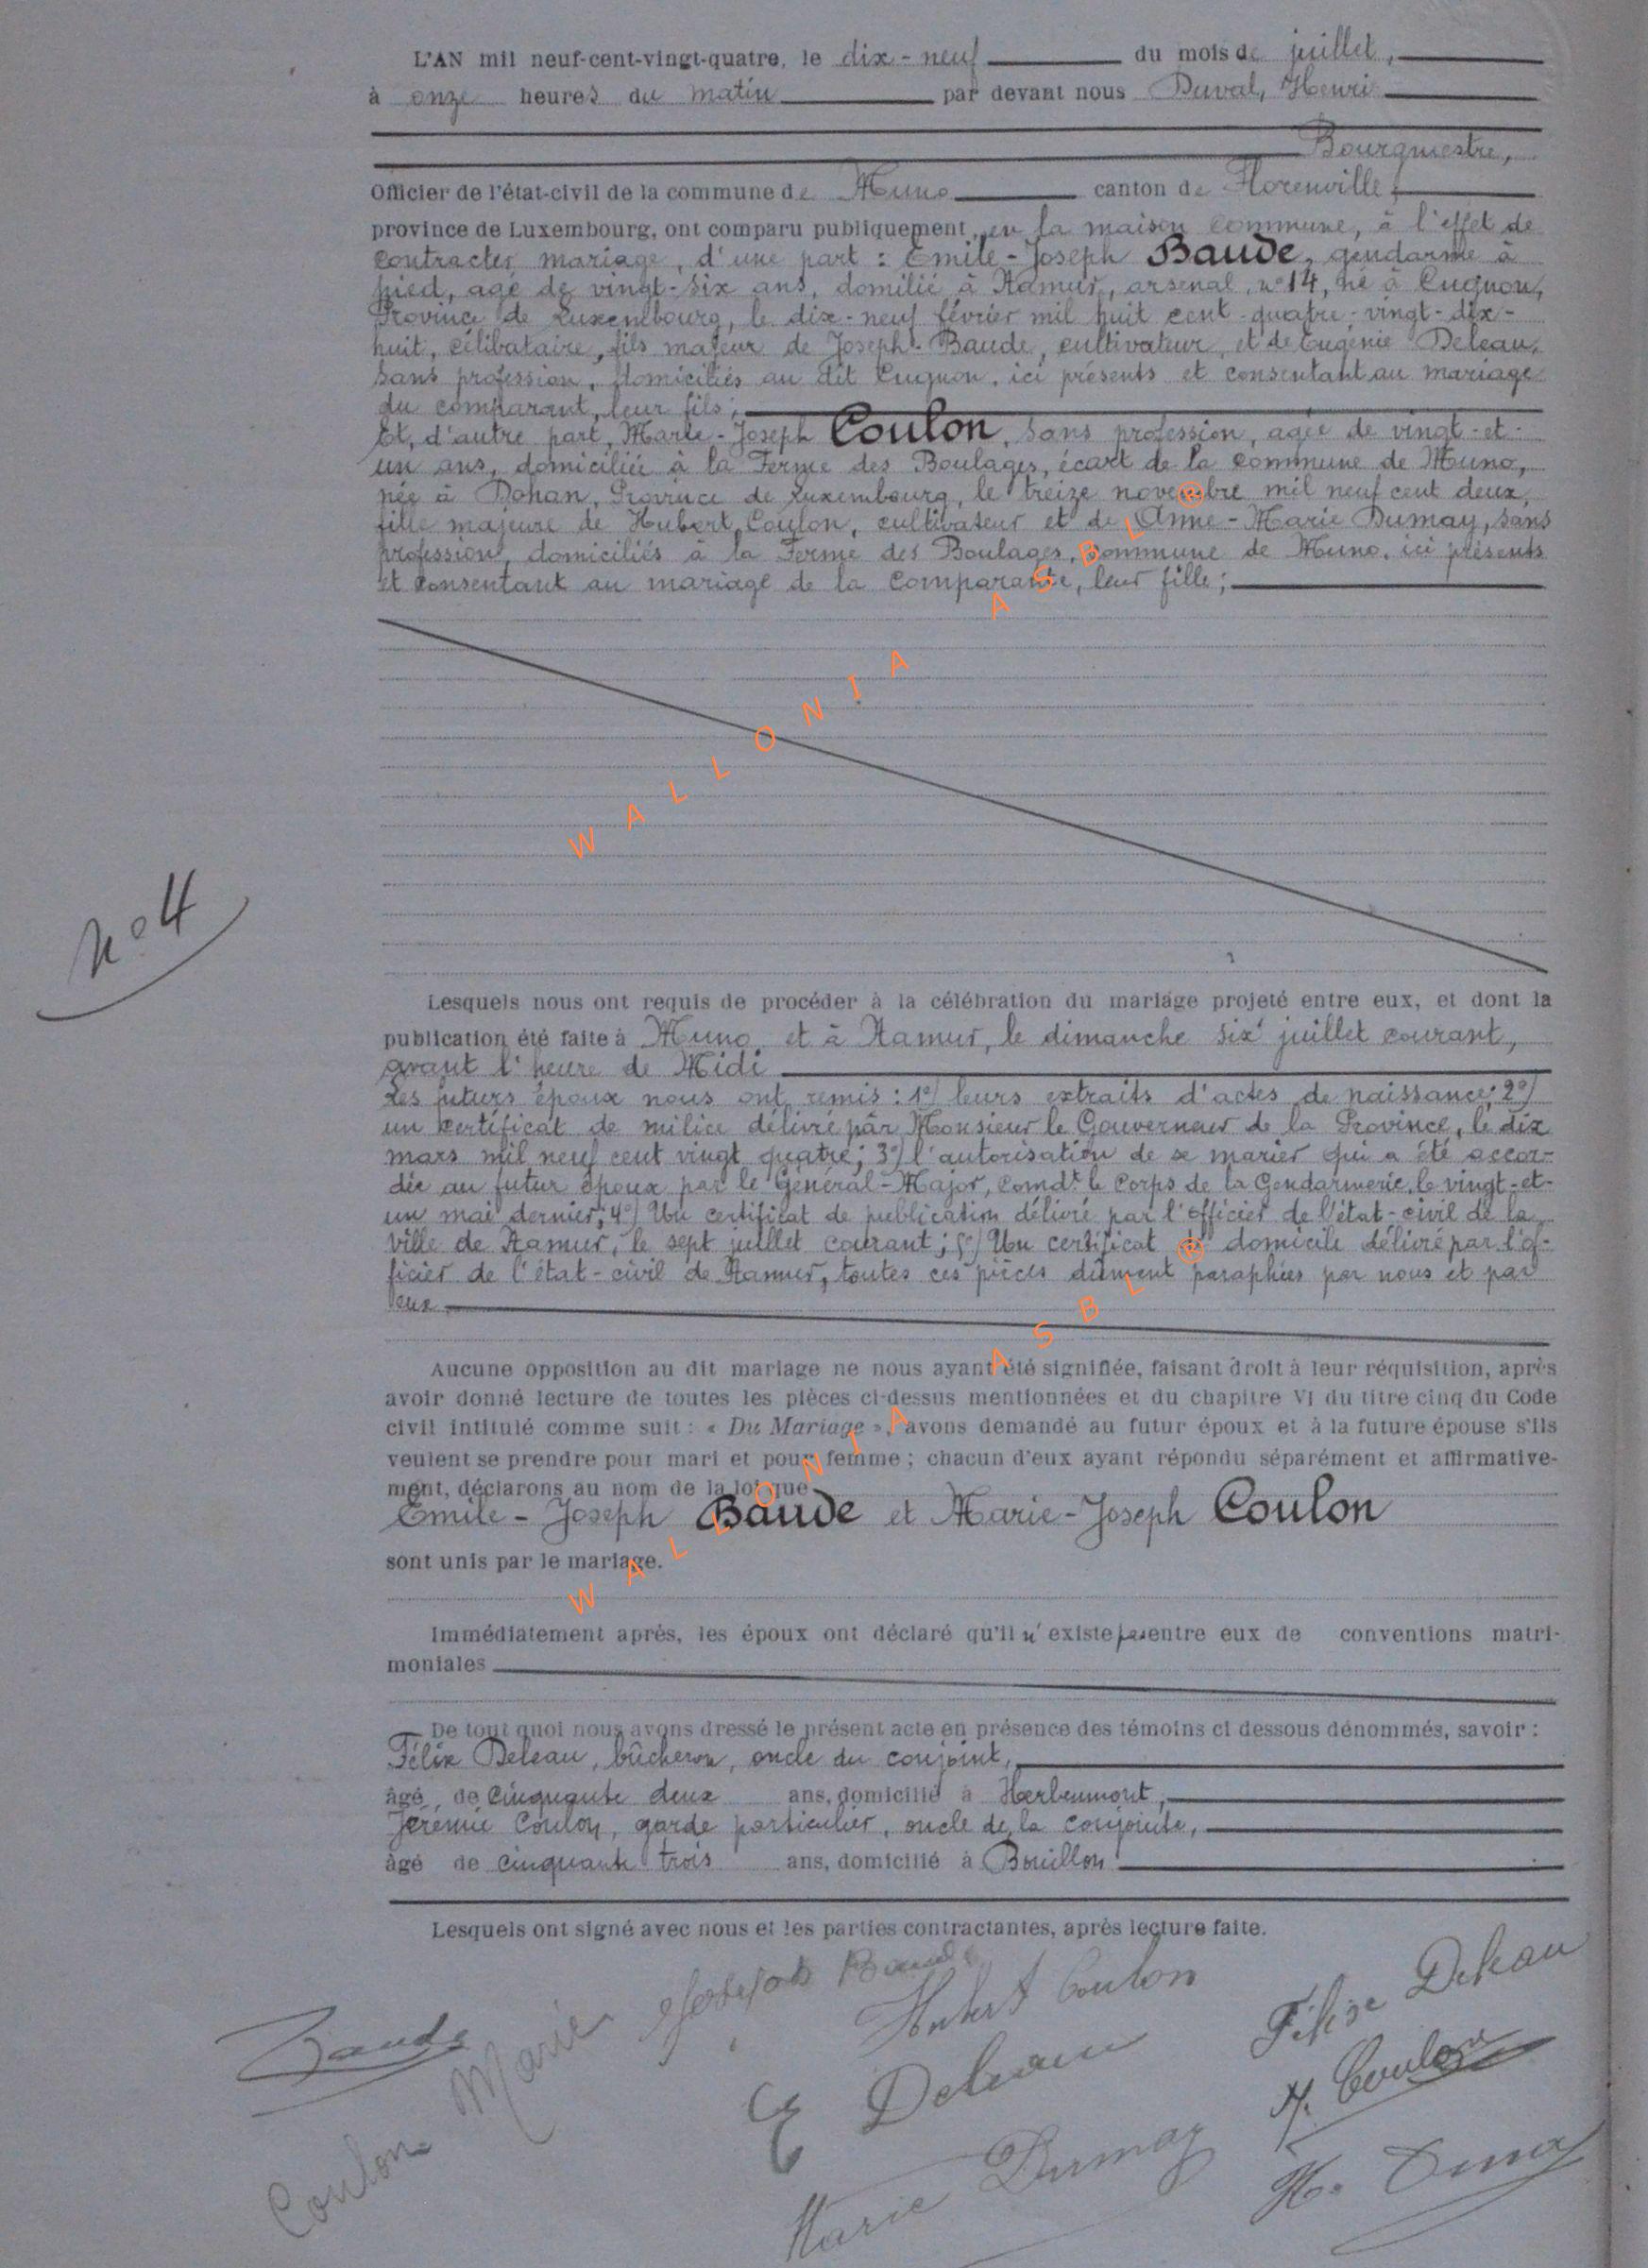 L'AN mil neuf-cent-vingt-quatre, le dix-neuf du mois de juillet,
à onze heures du matin par devant nous Duval, Henri
Bourgmestre,
Officier de l'état-civil de la commune de Muno canton de Florenville,
province de Luxembourg, ont comparu publiquement, en la maison commune, à l'effet de
contracter mariage, d'une part : Emile-Joseph Baude, gendarme à
pied, agé de vingt-six ans, domilié à Namur, arsenal, n° 14, né à Cugnon,
Province de Luxembourg, le dix-neuf février mil huit cent-quatre-vingt-dix-
huit, célibataire, fils majeur de Joseph Baude, cultivateur, et de Eugénie Deleau,
sans profession, domiciliés au dit Cugnon, ici présents et consentant au mariage
du comparant, leur fils;
Et, d'autre part, Marie-Joseph Coulon, sans profession, agée de vingt-et-
un ans, domiciliée à la Ferme des Boulages, écart de la commune de Muno,
née à Dohan, Province de Luxembourg, le treize novembre mil neuf cent deux,
fille majeure de Hubert Coulon, cultivateur et de Anne-Marie Dumay, sans
profession, domiciliés à la Ferme des Boulages, commune de Muno, ici présents
et consentant au mariage de la comparante, leur fille;
WALLONIA ASBL ®
N° 4
Lesquels nous ont requis de procéder à la célébration du mariage projeté entre eux, et dont la
publication été faite à Muno et à Namur, le dimanche six juillet courant,
avant l'heure de Midi
Les futurs époux nous ont remis : 1°/ leurs extraits d'actes de naissance; 2°/
un certificat de milice délivré par Monsieur le Gouverneur de la Province, le dix
mars mil neuf cent vingt quatre; 3°/ l'autorisation de se marier qui a été accor-
dée au futur époux par le Général-Major, Comdt le Corps de la Gendarmerie, le vingt-et-
un mai dernier; 4°/ Un certificat de publication délivré par l'officier de l'état-civil de la
ville de Namur, le sept juillet courant; 5°/ Un certificat domicile délivré par l'of-
ficier de l'état-civil de Namur, toutes ces pièces dûment paraphées par nous et par
eux.
WALLONIA ASBL ®
Aucune opposition au dit mariage ne nous ayant été signifiée, faisant droit à leur réquisition, après
avoir donné lecture de toutes les pièces ci-dessus mentionnées et du chapitre VI du titre cinq du Code
civil intitulé comme suit : « Du Mariage », avons demandé au futur époux et à la future épouse s'ils
veulent se prendre pour mari et pour femme ; chacun d'eux ayant répondu séparément et affirmative-
ment, déclarons au nom de la loi que
Emile-Joseph Baude et Marie-Joseph Coulon
sont unis par le mariage.
Immédiatement après, les époux ont déclaré qu'il n'existe pas entre eux de conventions matri-
moniales
De tout quoi nous avons dressé le présent acte en présence des témoins ci dessous dénommés, savoir :
Félix Deleau, bûcheron, oncle du conjoint,
âgé de cinquante deux ans, domicilié à Herbeumont,
Jérémie Coulon, garde particulier, oncle de la conjointe,
âgé de cinquante trois ans, domicilié à Bouillon
Lesquels ont signé avec nous et les parties contractantes, après lecture faite.
Baude
Coulon Marie
Joseph Baude
Hubert Coulon
Félix Deleau
E Deleau
J. Coulon
Marie Dumay
H. Duval